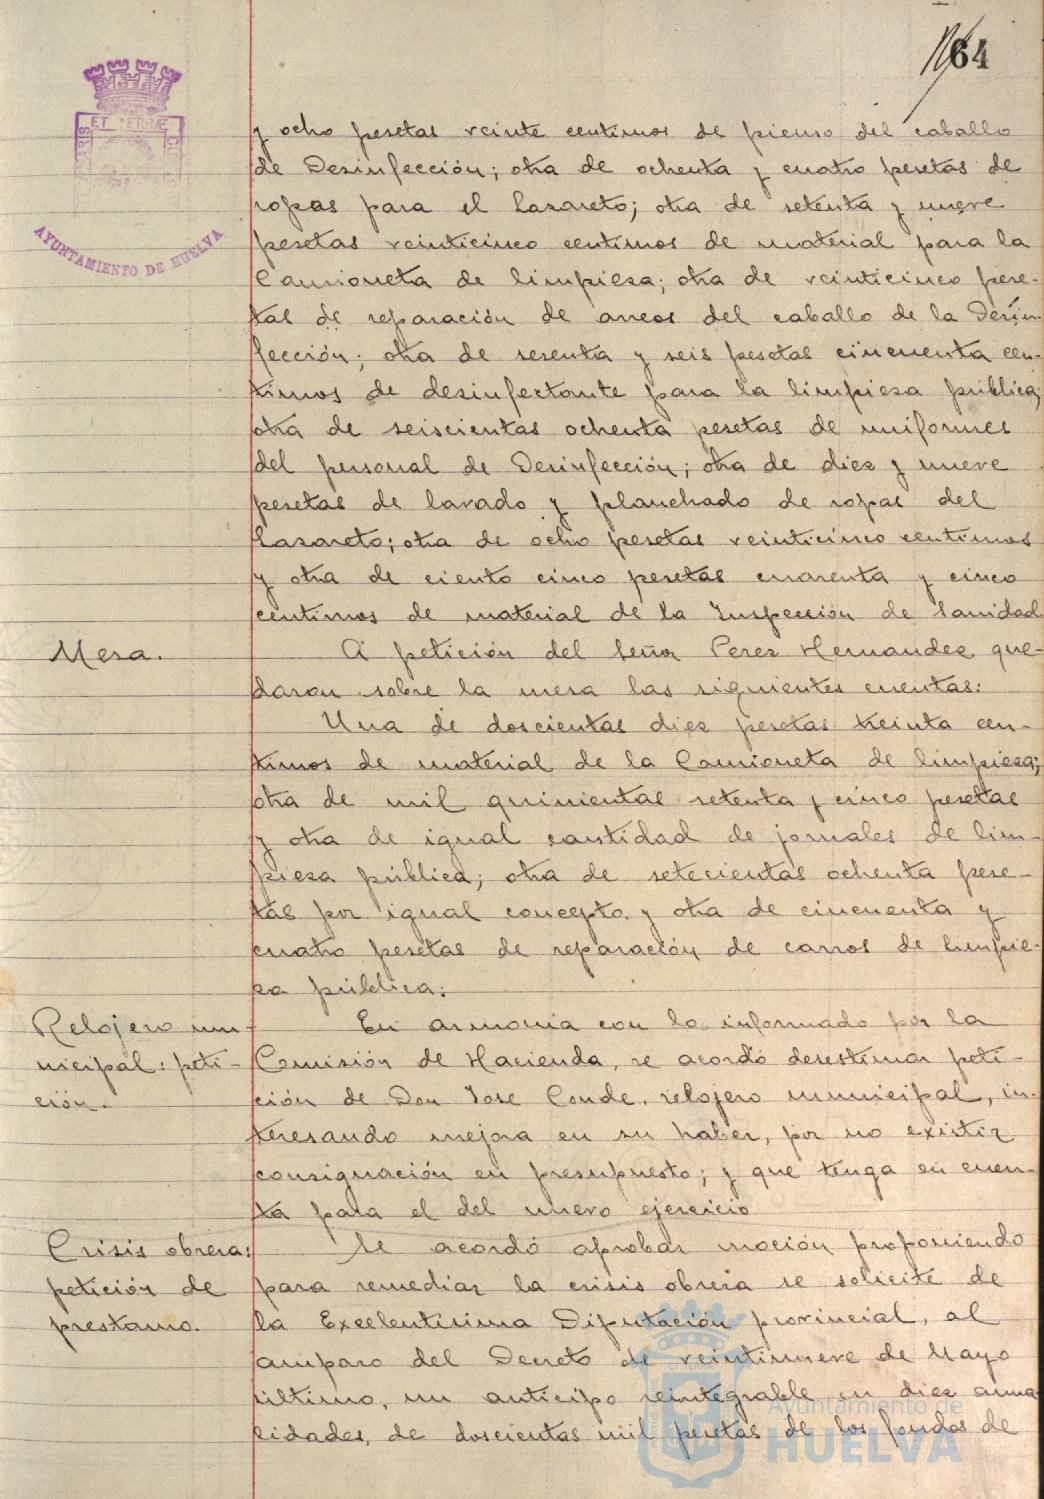 64
ET TERRAE
AYUNTAMIENTO DE HUELVA
y ocho pesetas veinte centimos de pienso del caballo
de Desinfección; otra de ochenta y cuatro pesetas de
ropas para el Lazareto; otra de setenta y nueve
pesetas veinticinco centimos de material para la
Camioneta de limpieza; otra de veinticinco pese-
tas de reparación de arreos del caballo de la Desin-
fección; otra de sesenta y seis pesetas cincuenta cen-
timos de desinfectante para la limpiesa pública;
otra de seiscientas ochenta pesetas de uniformes
del personal de Desinfección; otra de diez y nueve
pesetas de lavado y planchado de ropas del
Lazareto; otra de ocho pesetas veinticinco centimos
y otra de ciento cinco pesetas cuarenta y cinco
centimos de material de la Inspección de Sanidad
Mesa.
A petición del Señor Perez Hernandez que-
daron sobre la mesa las siguientes cuentas:
Una de doscientas diez pesetas treinta cen-
timos de material de la Camioneta de limpieza;
otra de mil quinientas setenta y cinco pesetas
y otra de igual cantidad de jornales de lim-
pieza pública; otra de setecientas ochenta pese-
tas por igual concepto y otra de cincuenta y
cuatro pesetas de reparación de carros de limpie-
za pública.
Relojero mu-
nicipal: peti-
ción.
En armonia con lo informado por la
Comisión de Hacienda, se acordó desestimar peti-
ción de Don José Conde, relojero municipal, in-
teresando mejora en su haber, por no existir
consignación en presupuesto; y que tenga en cuen-
ta para el del nuevo ejercicio
Crisis obrera:
petición de
prestamo.
Se acordó aprobar moción proponiendo
para remediar la crisis obrera se solicite de
la Excelentisima Diputación provincial, al
amparo del Decreto de veintinueve de Mayo
ultimo, un anticipo reintegrable en diez anua-
lidades, de doscientas mil pesetas de los fondos de
Ayuntamiento de
HUELVA